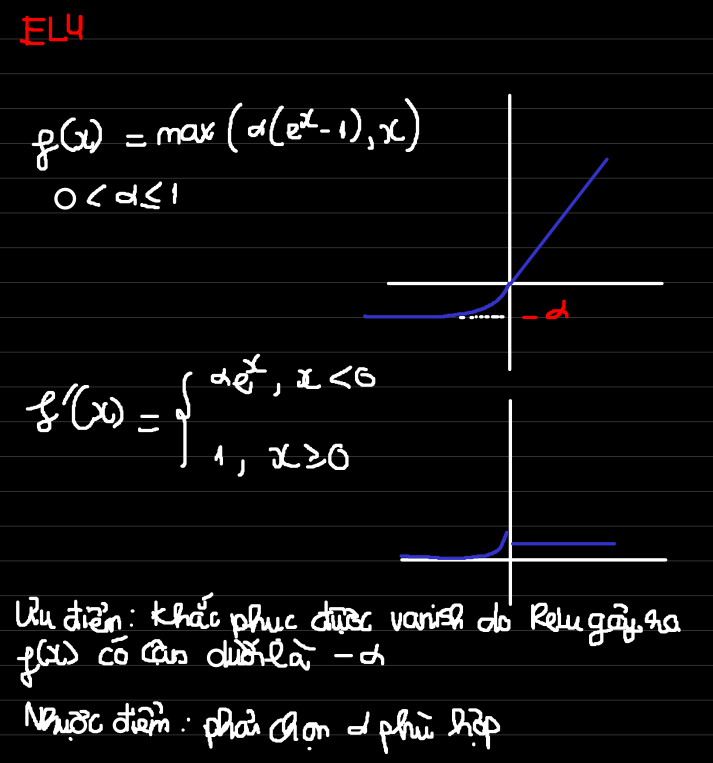 ELU
f(x) = max(α(eˣ-1), x)
0 < α ≤ 1
-α
f'(x) = { αeˣ, x < 0
1, x ≥ 0
Ưu điểm: Khắc phục được vanish do Relu gây ra
f(x) có cận dưới là -α
Nhược điểm: phải chọn α phù hợp